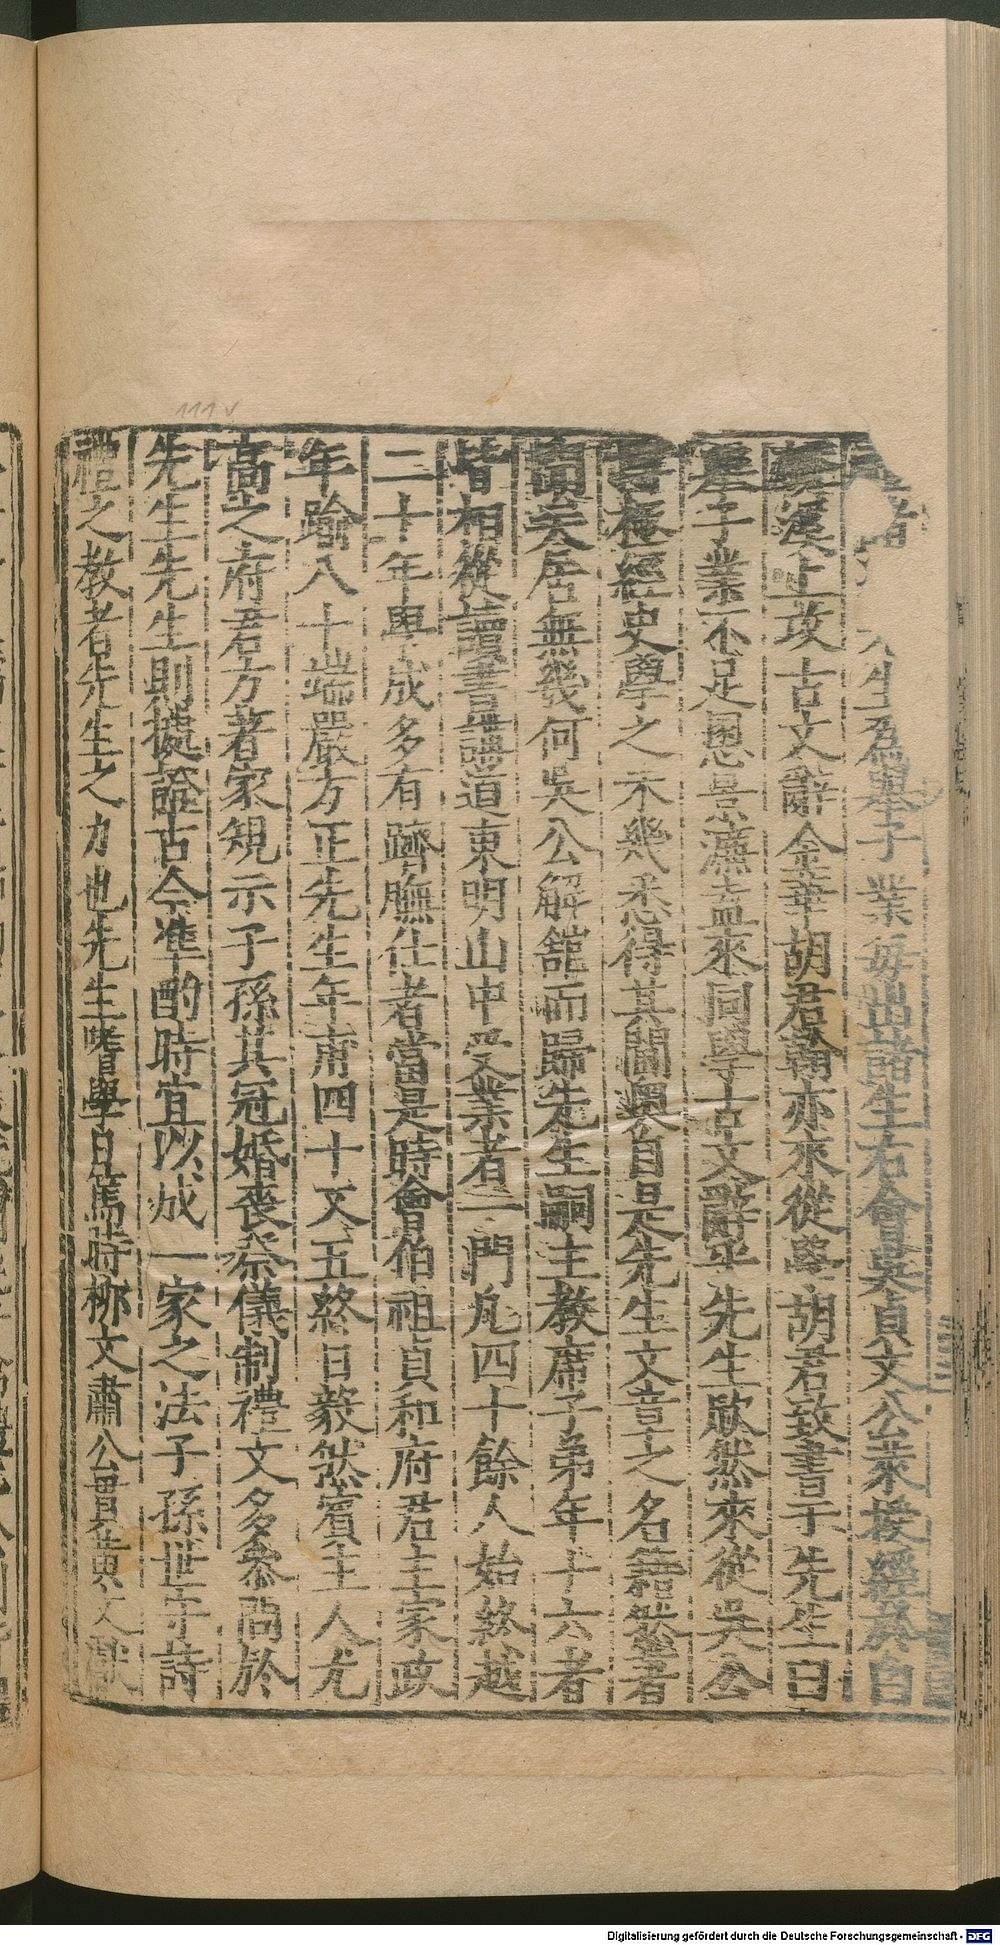 111 v
者
先生爲舉子業每出諸生右會吳貞文公萊授經於白
漢上攻古文辭金華胡君翰亦來從學胡君致書于先生曰
舉子業不足恩景濂盍來同學古文辭乎先生歘然來從吳公
極經史學之未幾悉得其閫奧自是先生文章之名籍然著
矣居無幾何吳公解舘而歸先生嗣主教席子弟年十六者
皆相從讀書講道東明山中受業者一門凡四十餘人始終越
二十年學成多有躋膴仕者當是時會伯祖貞和府君主家政
年踰八十端嚴方正先生年甫四十又五終日毅然賓主人尤
高之府君方著家規示子孫其冠婚喪祭儀制禮文多參問於
先生先生則據證古今準酌時宜以成一家之法子孫世守詩
禮之教者先生之力也先生嗜學日篤時柳文肅公貫黃文獻
Digitalisierung gefördert durch die Deutsche Forschungsgemeinschaft - DFG